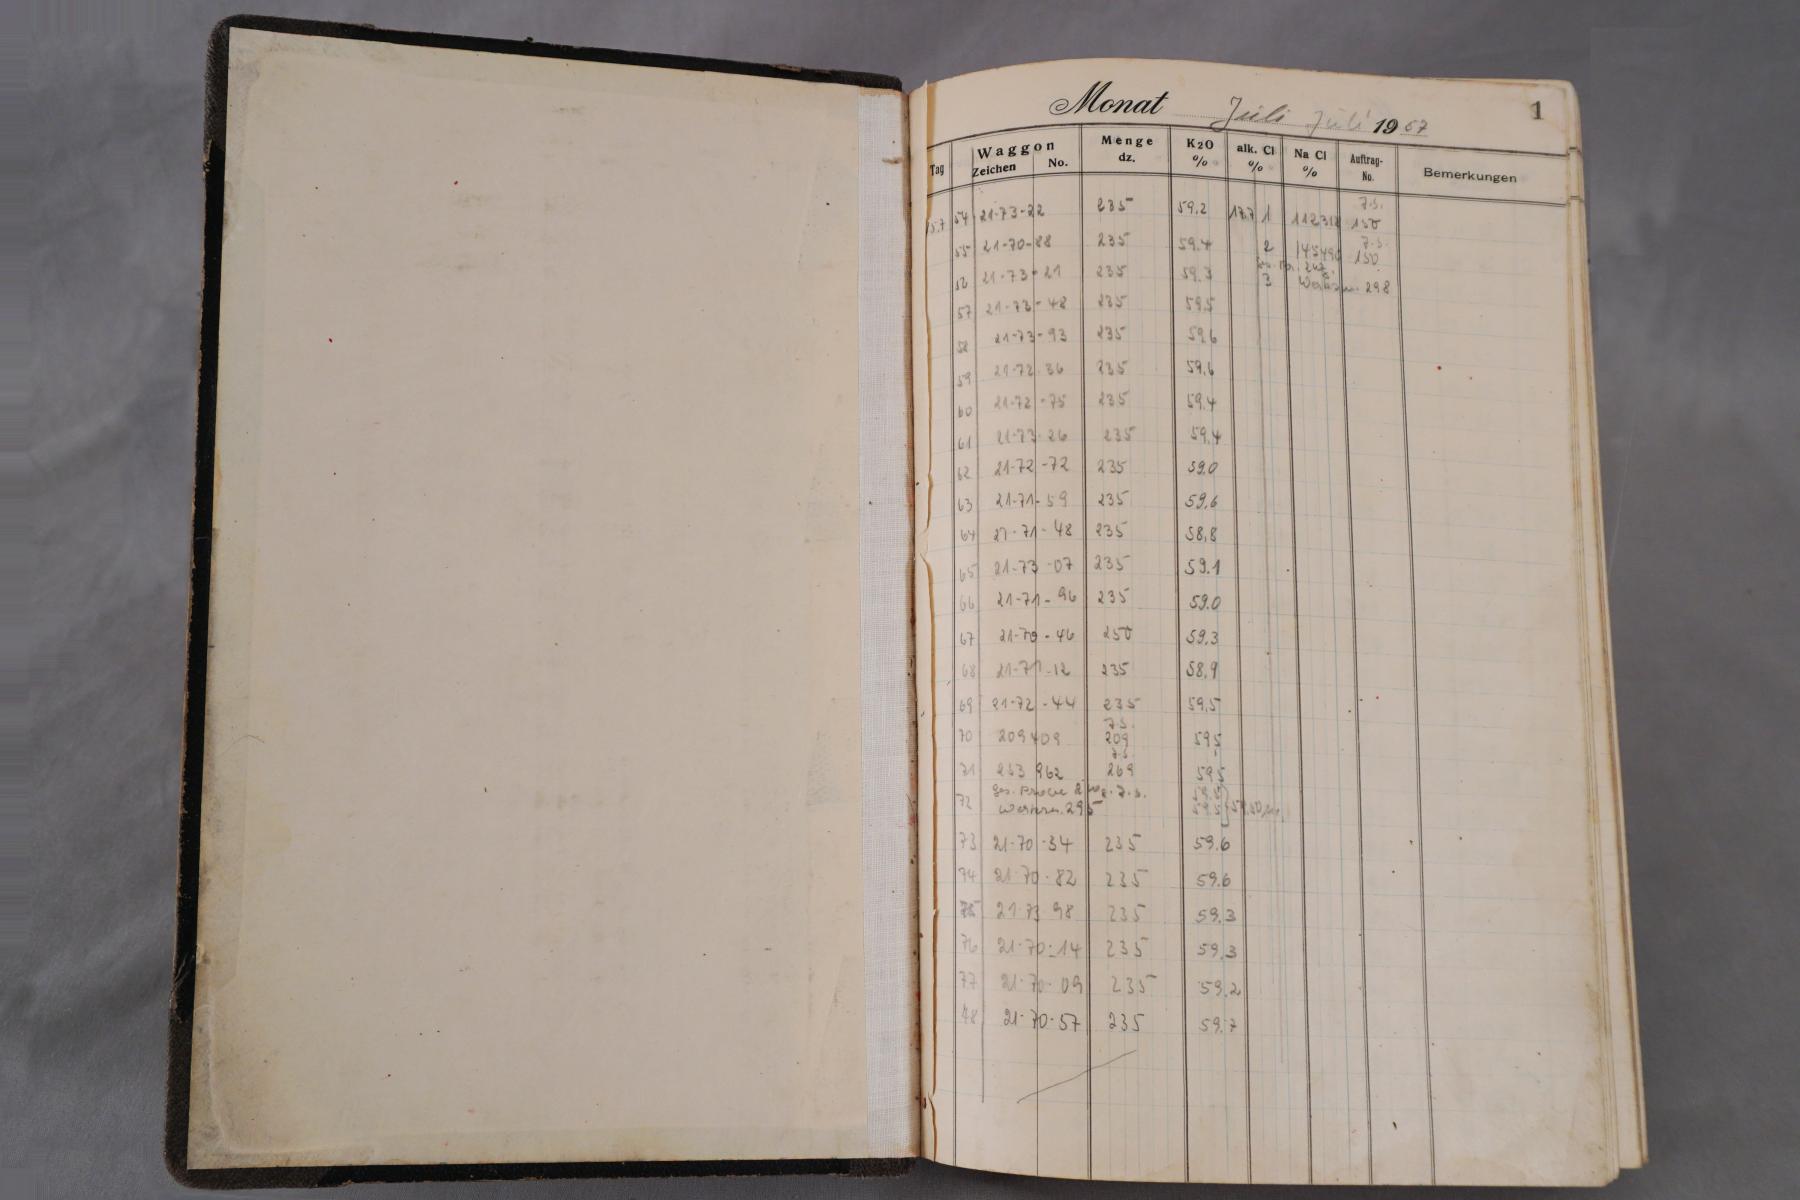 1
Monat Juli Juli 1967
Tag Waggon Zeichen No. Menge dz. K2O % alk. Cl % Na Cl % Auftrag-No. Bemerkungen
7.s.
54 21-73-22 235 59.2 17.7 1 112312 150
7.s.
55 21-70-88 235 59.4 2 145490 150
56 21-73-21 235 59.3 3 298
57 21-73-48 235 59.5
58 21-73-93 235 59.6
59 21-72-36 235 59.6
60 21-72-75 235 59.4
61 21-73-26 235 59.4
62 21-72-72 235 59.0
63 21-71-59 235 59.6
64 21-71-48 235 58.8
65 21-73-07 235 59.1
66 21-71-96 235 59.0
67 21-70-46 250 59.3
68 21-71-12 235 58.9
69 21-72-44 235 59.5
7.s.
70 209409 209 595
7.s.
71 233 962 269 595
ges. Probe 2 7.s. 59.5
72 295 59.5
73 21-70-34 235 59.6
74 21-70-82 235 59.6
75 21-73 98 235 59.3
76 21-70-14 235 59.3
77 21-70-09 235 59.2
48 21-70-57 235 59.7